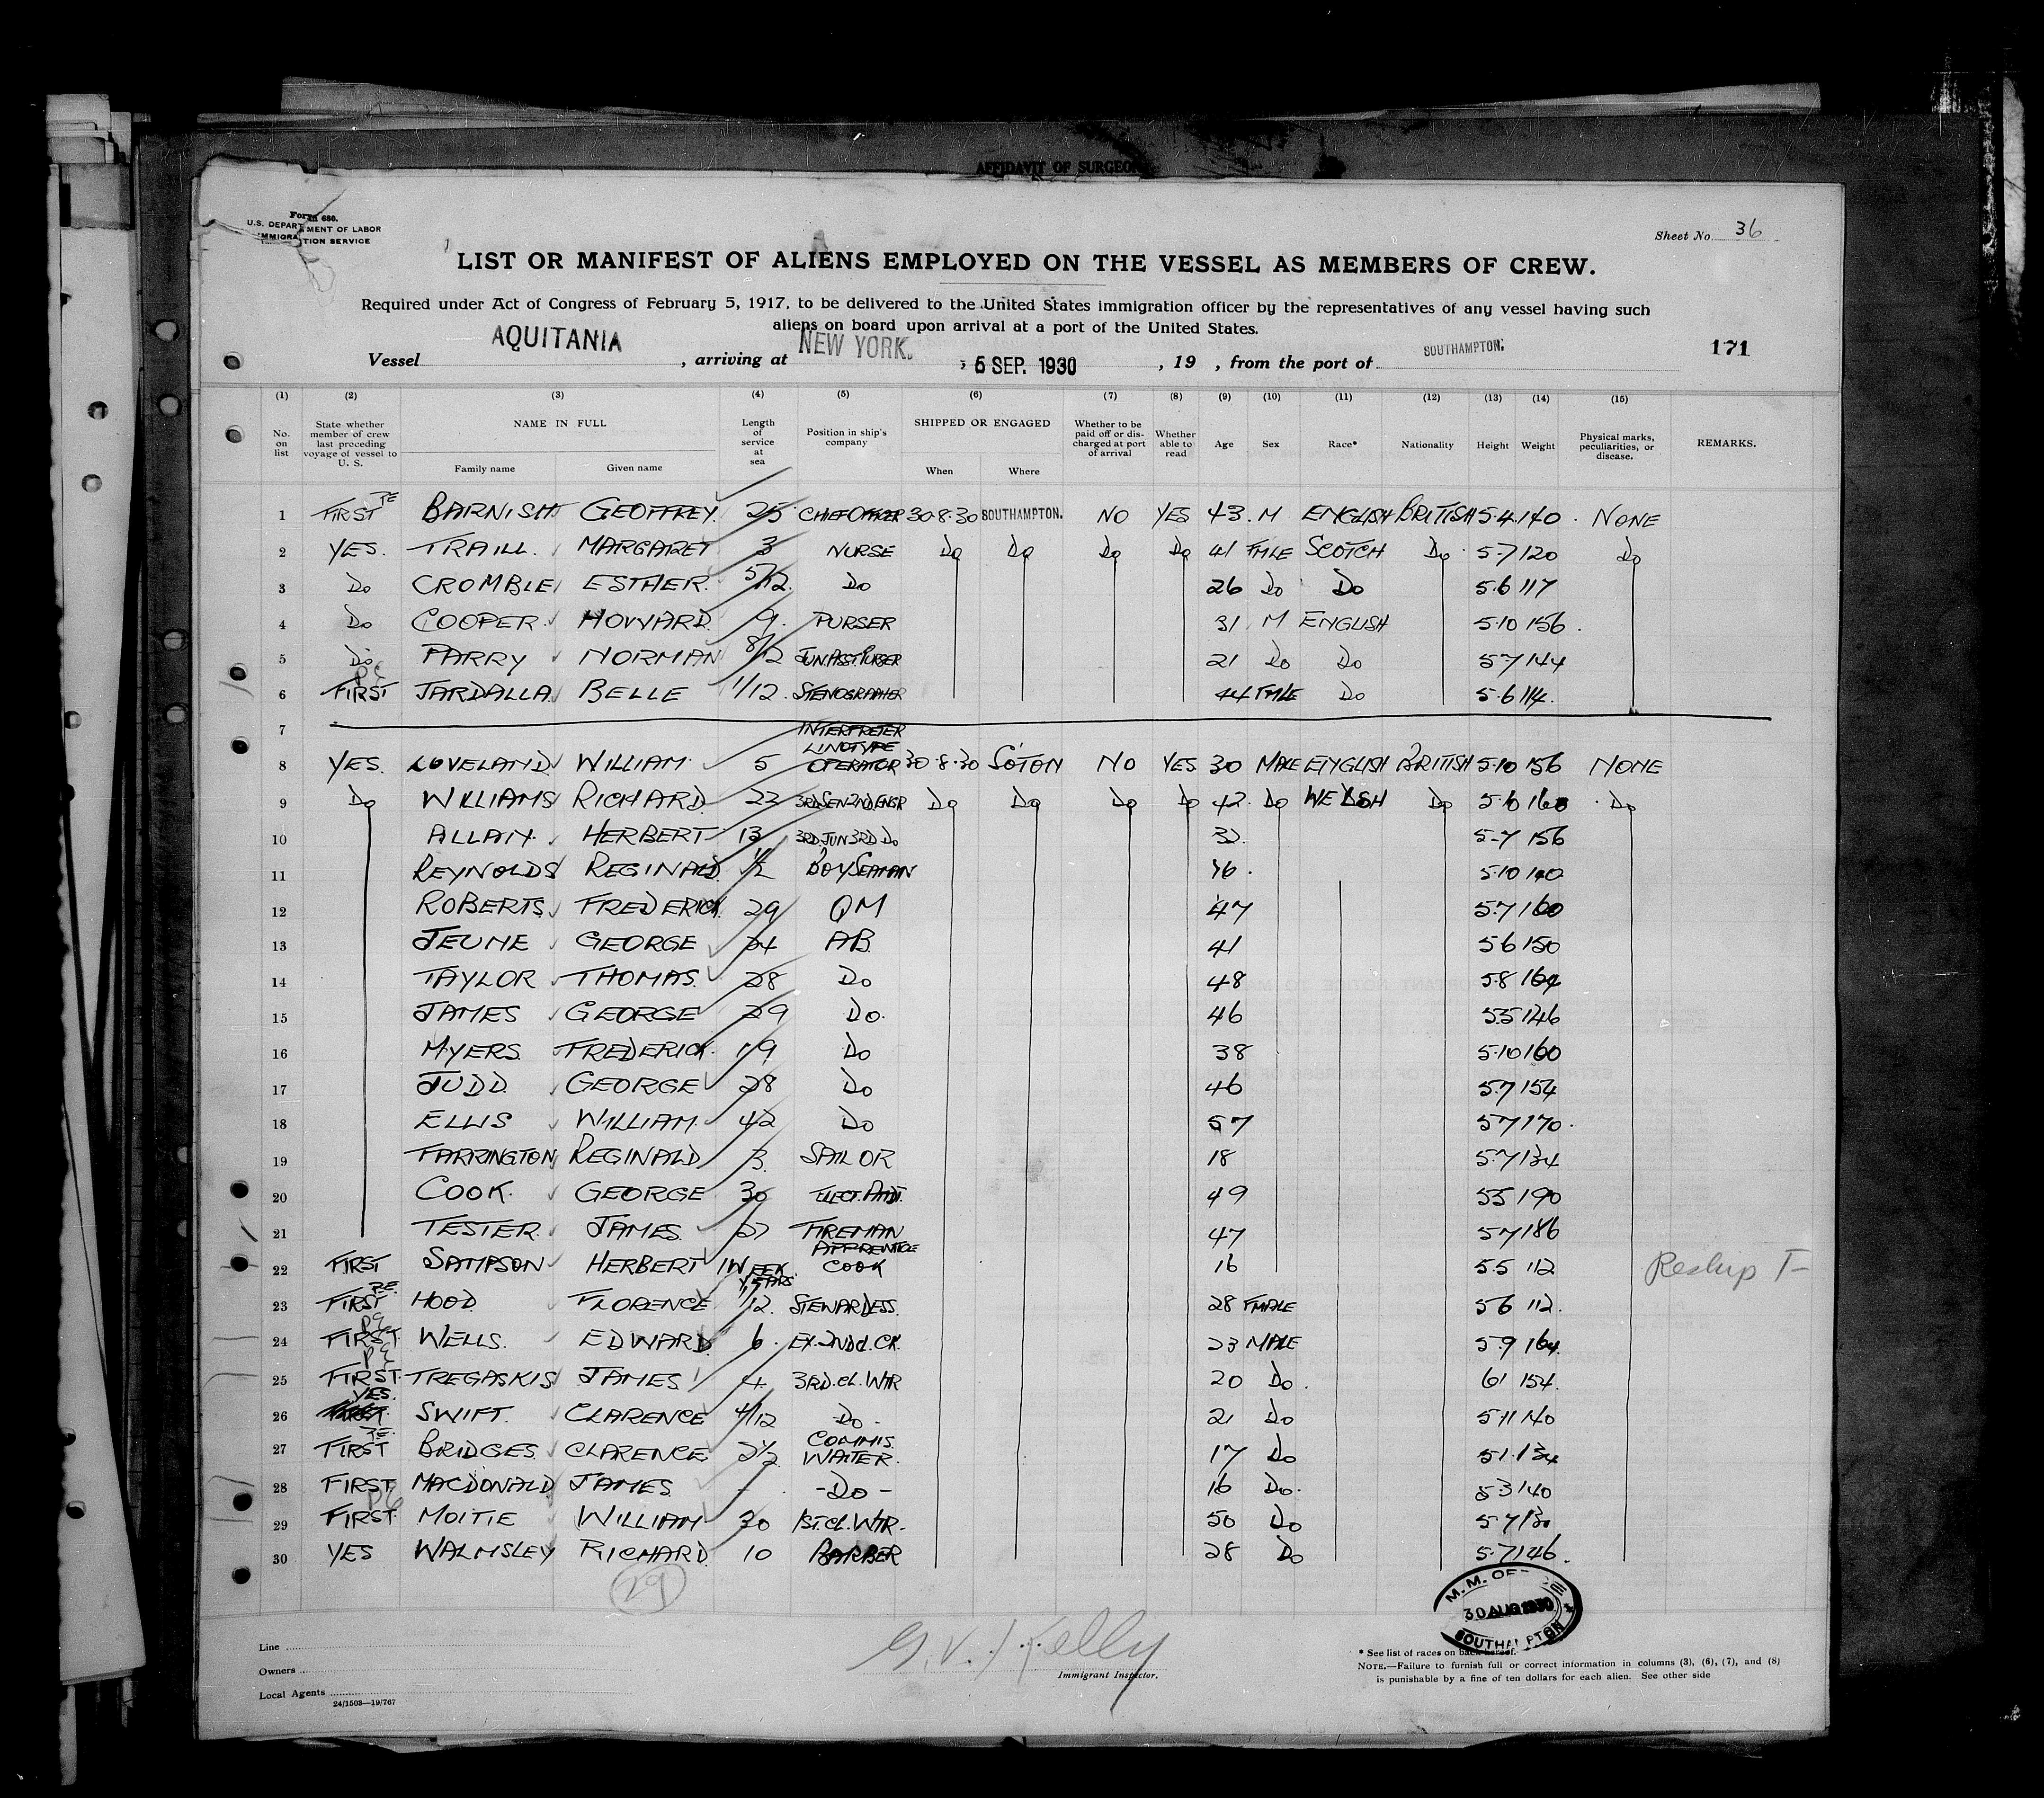 AFFIDAVIT OF SURGEON
Form 680.
U.S. DEPARTMENT OF LABOR
IMMIGRATION SERVICE
Sheet No. 36
LIST OR MANIFEST OF ALIENS EMPLOYED ON THE VESSEL AS MEMBERS OF CREW.
Required under Act of Congress of February 5, 1917, to be delivered to the United States immigration officer by the representatives of any vessel having such
aliens on board upon arrival at a port of the United States.
Vessel AQUITANIA, arriving at NEW YORK. 5 SEP. 1930, 19 , from the port of SOUTHAMPTON. 171
(1) (2) (3) (4) (5) (6) (7) (8) (9) (10) (11) (12) (13) (14) (15)
No. on list State whether member of crew last preceding voyage of vessel to U. S. NAME IN FULL Family name Given name Length of service at sea Position in ship's company SHIPPED OR ENGAGED When Where Whether to be paid off or discharged at port of arrival Whether able to read Age Sex Race* Nationality Height Weight Physical marks, peculiarities, or disease. REMARKS.
1 FIRST RE BARNISH GEOFFREY. 25 CHIEF OFFICER 30·8·30 SOUTHAMPTON. NO YES 43. M ENGLISH BRITISH 5·4 140. NONE
2 YES. TRAILL. MARGARET 3 NURSE Do Do Do Do 41 FMLE SCOTCH Do 5·7 120 Do
3 Do CROMBLE ESTHER. 5/12. Do 26 Do Do 5·6 117
4 Do COOPER HOWARD. 9. PURSER 31 M ENGLISH 5·10 156.
5 Do PARRY NORMAN 8/12 JUN.ASST.PURSER 21 Do Do 5·7 144
6 FIRST JARDALLA BELLE 1/12. STENOGRAPHER 44 FMLE Do 5·6 114.
7 INTERPRETER
8 YES. LOVELAND WILLIAM. 5 LINOTYPE OPERATOR 30·8·30 SOTON NO YES 30 MALE ENGLISH BRITISH 5·10 156 NONE
9 Do WILLIAMS RICHARD. 22 3RD.SEN 2ND ENGR Do Do Do Do 42. Do WELSH Do 5·6 160 Do
10 ALLAN. HERBERT 13 3RD.JUN 3RD Do 32. 5·7 156
11 REYNOLDS REGINALD. 1/2 BOY SEAMAN 16. 5·10 140
12 ROBERTS FREDERICK. 29 QM 47 5·7 160
13 JEUNE GEORGE 24 AB. 41 5·6 150
14 TAYLOR THOMAS. 28 Do 48 5·8 164
15 JAMES GEORGE 29 Do. 46 5·5 146
16 MYERS FREDERICK. 19 Do 38 5·10 160
17 JUDD. GEORGE 28 Do 46 5·7 154
18 ELLIS WILLIAM. 42 Do 57 5·7 170.
19 FARRINGTON REGINALD 3. SAILOR 18 5·7 134
20 COOK. GEORGE 30 ELECT. ATTDT. 49 5·5 190
21 TESTER. JAMES. 27 FIREMAN 47 5·7 186
22 FIRST SAMPSON HERBERT 1 WEEK APPRENTICE COOK 16 5·5 112 Reship T-
23 FIRST RE. HOOD. FLORENCE YEARS 1/12. STEWARDESS. 28 FMALE 5·6 112.
24 FIRST. WELLS. EDWARD 6. EX.2ND.CL.CK. 23 MALE 5·9 164.
25 FIRST. TREGASKIS JAMES 4 3RD.CL.WTR 20 Do. 6·1 154.
26 YES. SWIFT. CLARENCE 4/12 Do. 21 Do 5·11 140
27 FIRST RE. BRIDGES. CLARENCE 2 1/2 COMMIS. WAITER. 17 Do 5·1. 134
28 FIRST MACDONALD JAMES. - -Do- 16 Do. 5·3 140
29 FIRST. MOITIE WILLIAM 30 1ST.CL.WTR. 50 Do 5·7 130
30 YES WALMSLEY RICHARD. 10 BARBER 28 Do 5·7 146.
29
M. M. OFFICE
30 AUG 1930
SOUTHAMPTON
G. V. Kelly
Immigrant Inspector.
Line
Owners
Local Agents
24/1503—19/767
* See list of races on back hereof.
NOTE.—Failure to furnish full or correct information in columns (3), (6), (7), and (8)
is punishable by a fine of ten dollars for each alien. See other side